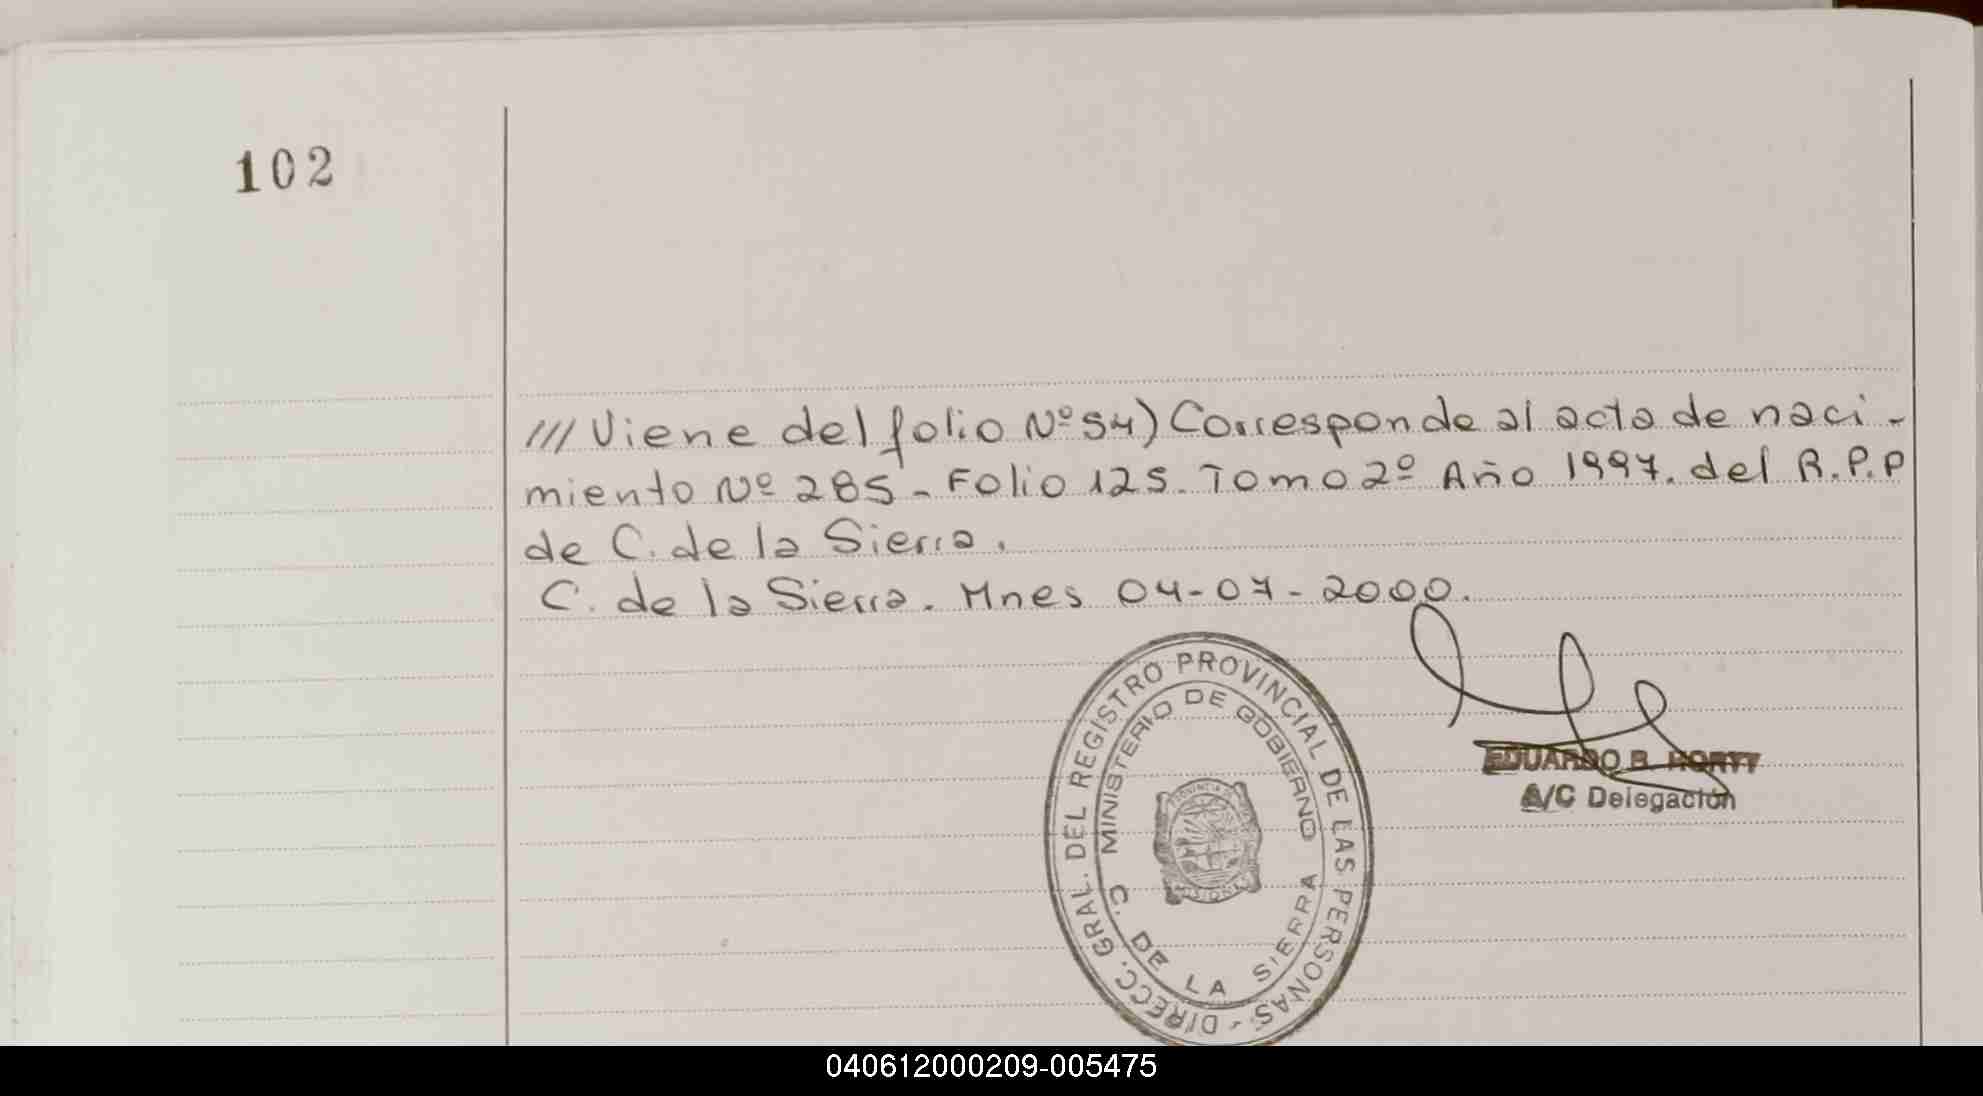 102
/// Viene del folio Nº 54) Corresponde al acta de naci-
miento Nº 285 - Folio 125. Tomo 2º Año 1997. del R.P.P
de C. de la Sierra.
C. de la Sierra. Mnes 04-07-2000.
DIRECC. GRAL. DEL REGISTRO PROVINCIAL DE LAS PERSONAS -
MINISTERIO DE GOBIERNO
C. DE LA SIERRA
EDUARDO R.
A/C Delegación
040612000209-005475